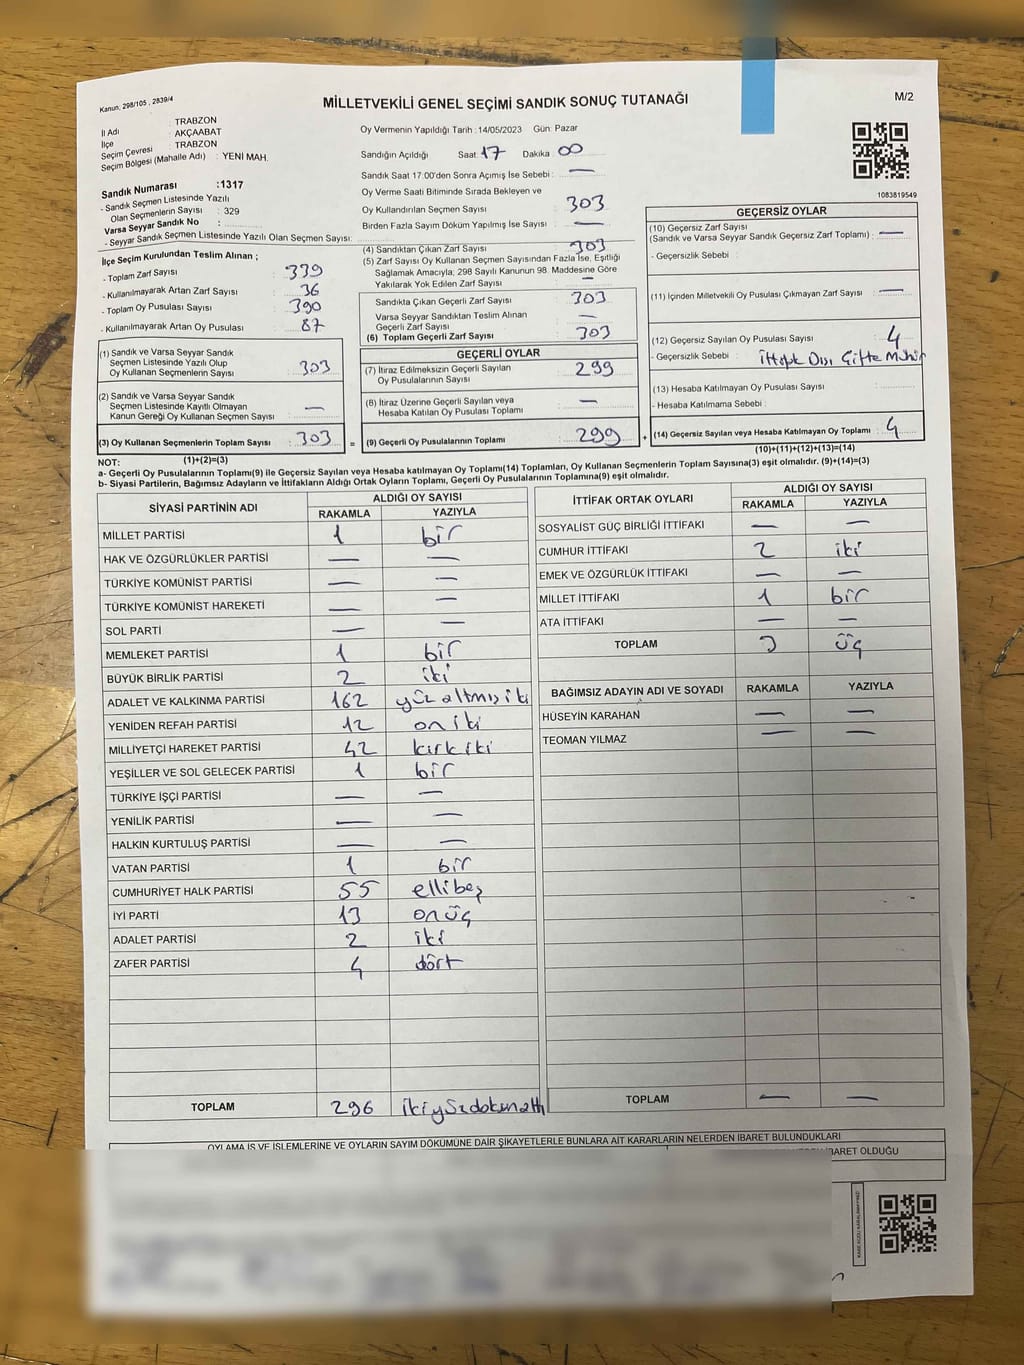 Kanun, 298/105 , 2839/4
MİLLETVEKİLİ GENEL SEÇİMİ SANDIK SONUÇ TUTANAĞI
M/2
İl Adı : TRABZON
İlçe : AKÇAABAT
Seçim Çevresi : TRABZON
Seçim Bölgesi (Mahalle Adı) : YENİ MAH.
Sandık Numarası :1317
- Sandık Seçmen Listesinde Yazılı
Olan Seçmenlerin Sayısı : 329
Varsa Seyyar Sandık No :
- Seyyar Sandık Seçmen Listesinde Yazılı Olan Seçmen Sayısı:
İlçe Seçim Kurulundan Teslim Alınan ;
- Toplam Zarf Sayısı 339
- Kullanılmayarak Artan Zarf Sayısı : 36
- Toplam Oy Pusulası Sayısı : 390
- Kullanılmayarak Artan Oy Pusulası : 87
(1) Sandık ve Varsa Seyyar Sandık
Seçmen Listesinde Yazılı Olup
Oy Kullanan Seçmenlerin Sayısı : 303
(2) Sandık ve Varsa Seyyar Sandık
Seçmen Listesinde Kayıtlı Olmayan
Kanun Gereği Oy Kullanan Seçmen Sayısı : —
(3) Oy Kullanan Seçmenlerin Toplam Sayısı : 303 =
(1)+(2)=(3)
Oy Vermenin Yapıldığı Tarih : 14/05/2023 Gün: Pazar
Sandığın Açıldığı Saat: 17 Dakika : 00
Sandık Saat 17:00'den Sonra Açımış İse Sebebi : —
Oy Verme Saati Bitiminde Sırada Bekleyen ve
Oy Kullandırılan Seçmen Sayısı 303
Birden Fazla Sayım Döküm Yapılmış İse Sayısı : —
(4) Sandıktan Çıkan Zarf Sayısı : 303
(5) Zarf Sayısı Oy Kullanan Seçmen Sayısından Fazla İse, Eşitliği
Sağlamak Amacıyla; 298 Sayılı Kanunun 98. Maddesine Göre
Yakılarak Yok Edilen Zarf Sayısı : —
Sandıkta Çıkan Geçerli Zarf Sayısı : 303
Varsa Seyyar Sandıktan Teslim Alınan
Geçerli Zarf Sayısı : —
(6) Toplam Geçerli Zarf Sayısı : 303
GEÇERLİ OYLAR
(7) İtiraz Edilmeksizin Geçerli Sayılan
Oy Pusulalarının Sayısı : 299
(8) İtiraz Üzerine Geçerli Sayılan veya
Hesaba Katılan Oy Pusulası Toplamı : —
(9) Geçerli Oy Pusulalarının Toplamı : 299 +
1083819549
GEÇERSİZ OYLAR
(10) Geçersiz Zarf Sayısı
(Sandık ve Varsa Seyyar Sandık Geçersiz Zarf Toplamı) : —
- Geçersizlik Sebebi :
(11) İçinden Milletvekili Oy Pusulası Çıkmayan Zarf Sayısı : —
(12) Geçersiz Sayılan Oy Pusulası Sayısı : 4
- Geçersizlik Sebebi : İttifak Dışı Çifte Mühür
(13) Hesaba Katılmayan Oy Pusulası Sayısı :
- Hesaba Katılmama Sebebi :
(14) Geçersiz Sayılan veya Hesaba Katılmayan Oy Toplamı : 4
(10)+(11)+(12)+(13)=(14)
NOT:
a- Geçerli Oy Pusulalarının Toplamı(9) ile Geçersiz Sayılan veya Hesaba katılmayan Oy Toplamı(14) Toplamları, Oy Kullanan Seçmenlerin Toplam Sayısına(3) eşit olmalıdır. (9)+(14)=(3)
b- Siyasi Partilerin, Bağımsız Adayların ve İttifakların Aldığı Ortak Oyların Toplamı, Geçerli Oy Pusulalarının Toplamına(9) eşit olmalıdır.
SİYASİ PARTİNİN ADI ALDIĞI OY SAYISI
RAKAMLA YAZIYLA
MİLLET PARTİSİ 1 bir
HAK VE ÖZGÜRLÜKLER PARTİSİ — —
TÜRKİYE KOMÜNİST PARTİSİ — —
TÜRKİYE KOMÜNİST HAREKETİ — —
SOL PARTİ — —
MEMLEKET PARTİSİ 1 bir
BÜYÜK BİRLİK PARTİSİ 2 iki
ADALET VE KALKINMA PARTİSİ 162 yüz altmış iki
YENİDEN REFAH PARTİSİ 12 on iki
MİLLİYETÇİ HAREKET PARTİSİ 42 kırk iki
YEŞİLLER VE SOL GELECEK PARTİSİ 1 bir
TÜRKİYE İŞÇİ PARTİSİ — —
YENİLİK PARTİSİ — —
HALKIN KURTULUŞ PARTİSİ — —
VATAN PARTİSİ 1 bir
CUMHURİYET HALK PARTİSİ 55 ellibeş
İYİ PARTİ 13 onüç
ADALET PARTİSİ 2 iki
ZAFER PARTİSİ 4 dört
TOPLAM 296 ikiyüzdoksanaltı
İTTİFAK ORTAK OYLARI ALDIĞI OY SAYISI
RAKAMLA YAZIYLA
SOSYALİST GÜÇ BİRLİĞİ İTTİFAKI — —
CUMHUR İTTİFAKI 2 iki
EMEK VE ÖZGÜRLÜK İTTİFAKI — —
MİLLET İTTİFAKI 1 bir
ATA İTTİFAKI — —
TOPLAM 3 üç
BAĞIMSIZ ADAYIN ADI VE SOYADI RAKAMLA YAZIYLA
HÜSEYİN KARAHAN — —
TEOMAN YILMAZ — —
TOPLAM — —
OYLAMA İŞ VE İŞLEMLERİNE VE OYLARIN SAYIM DÖKÜMÜNE DAİR ŞİKAYETLERLE BUNLARA AİT KARARLARIN NELERDEN İBARET BULUNDUKLARI
İBARET OLDUĞU
KARE KODU KARALAMAYINIZ!